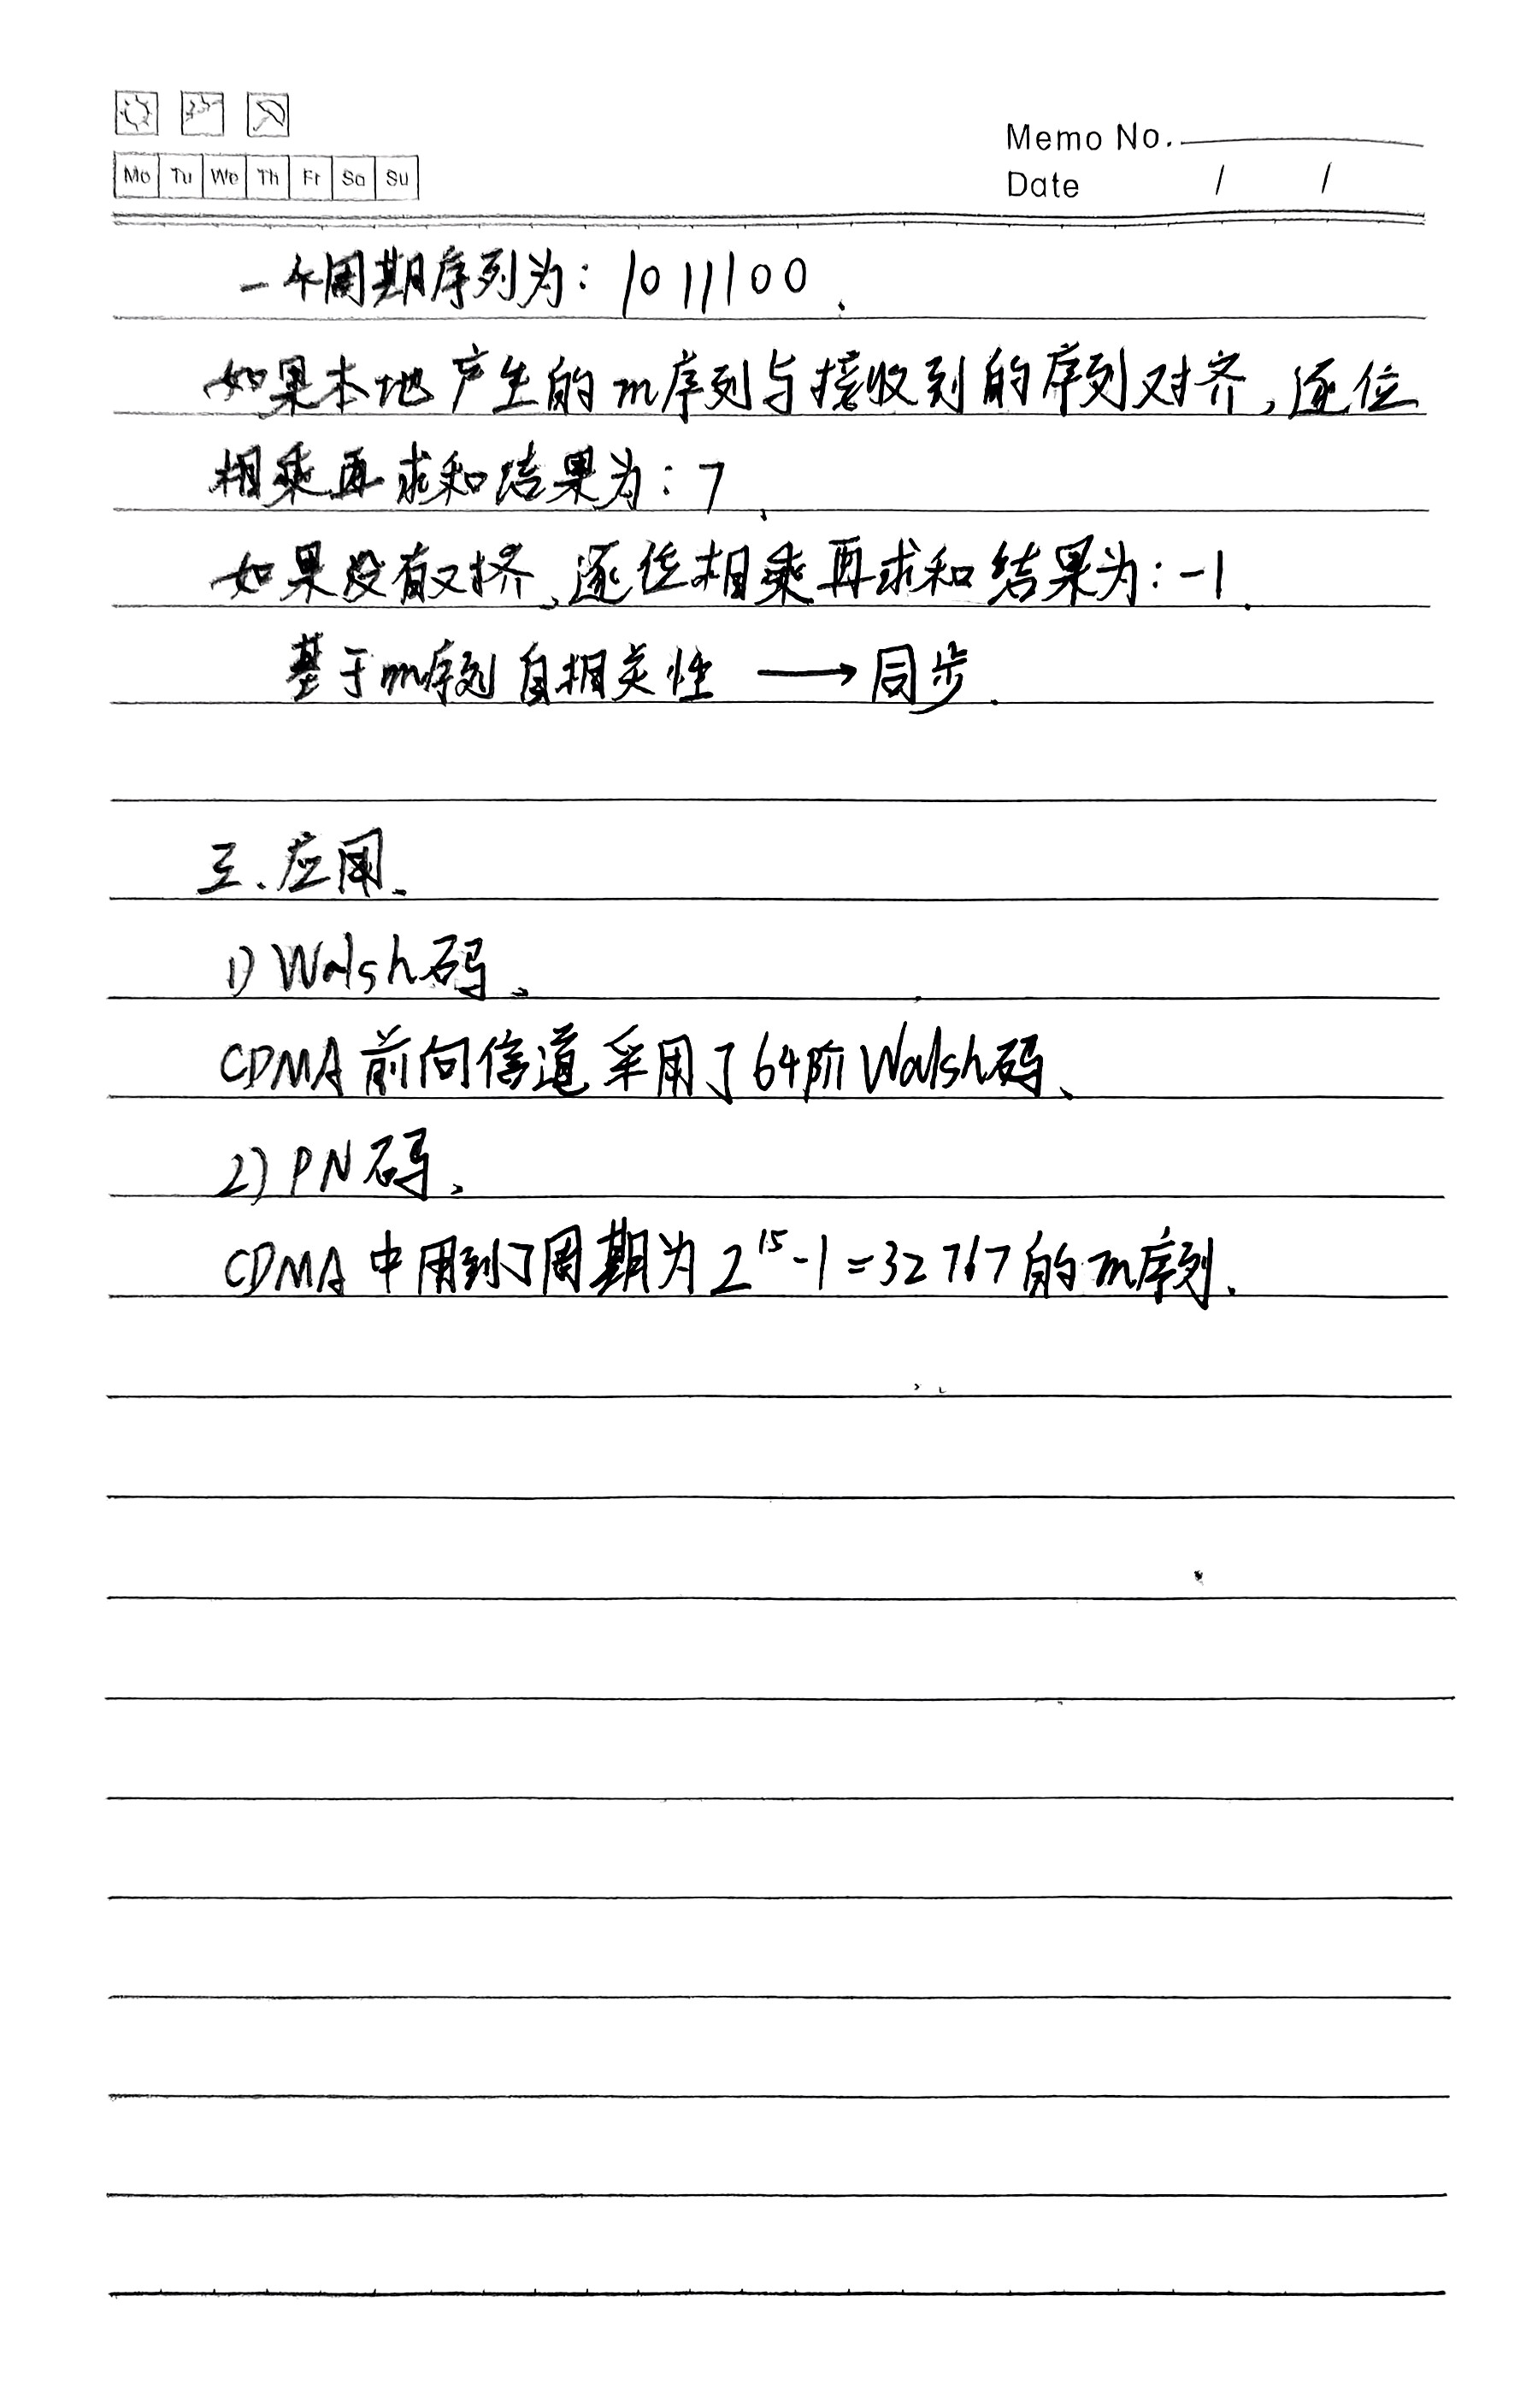 Memo No.
Mo Tu We Th Fr Sa Su
Date / /
一个周期序列为：1011100.
如果本地产生的m序列与接收到的序列对齐,逐位
相乘再求和结果为：7、
如果没有对齐、逐位相乘再求和结果为：-1.
基于m序列自相关性 → 同步.
三、应用、
1) Walsh码、
CDMA前向信道采用了64阶Walsh码、
2) PN码、
CDMA中用到了周期为2¹⁵-1=32767的m序列、